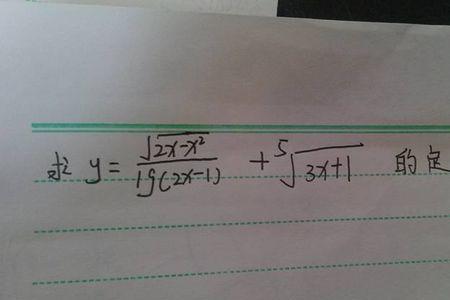 求 y = √(2x-x²) / lg(2x-1) + ⁵√(3x+1) 的定